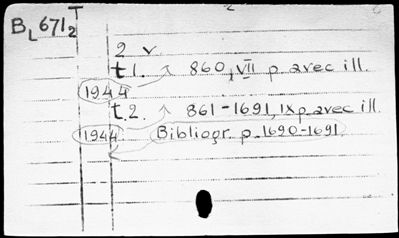 B L 671 2
2 v
t 1. 860, VII p. avec ill.
1944
t. 2. 861-1691, IX p. avec ill.
1944. Bibliogr. p. 1690-1691.